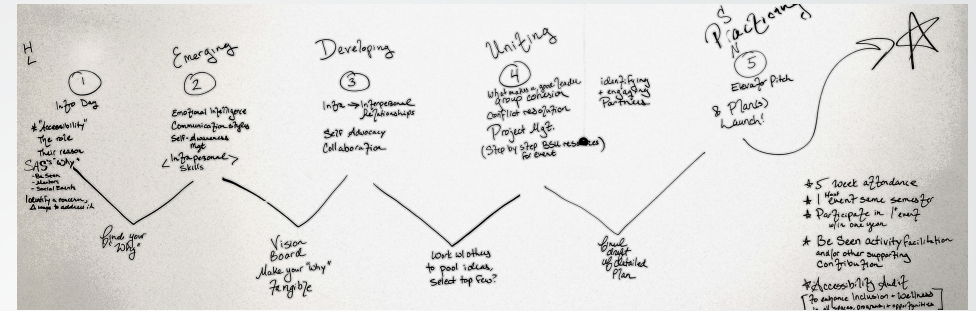 H
L
1
Intro Day
* "Accessibility"
The role
Their reason
SAS's "Why"
- Be Seen
- Social Events
Identify a concern,
ways to address it
Find your
"Why"
Emerging
2
Emotional Intelligence
Communication styles
Self-Awareness
Mgt
< Intrapersonal >
Skills
Vision
Board
Make your "Why"
Tangible
Developing
3
Intra → Interpersonal
Relationships
Self Advocacy
Collaboration
Work w/others
to pool ideas,
select top few?
Uniting
4
What makes a good leader
group cohesion
Conflict resolution
Project Mgt.
(Step by step BSU resources)
for Event
identifying
+ engaging
Partners
final
draft
of detailed
Plan
Practicing
5
Elevator Pitch
& Plan(s)
Launch!
* 5 week attendance
* 1 Host event same semester
* Participate in 1 event
w/in one year
* Be Seen activity facilitation
and/or other supporting
Contribution
* Accessibility Audit
[To enhance Inclusion + Wellness
in all spaces, programs + opportunities]